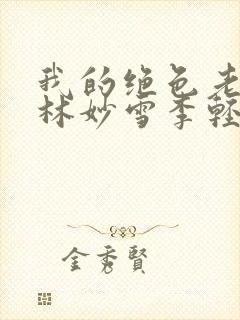 我的绝色老
林妙雪季轻
金秀賢